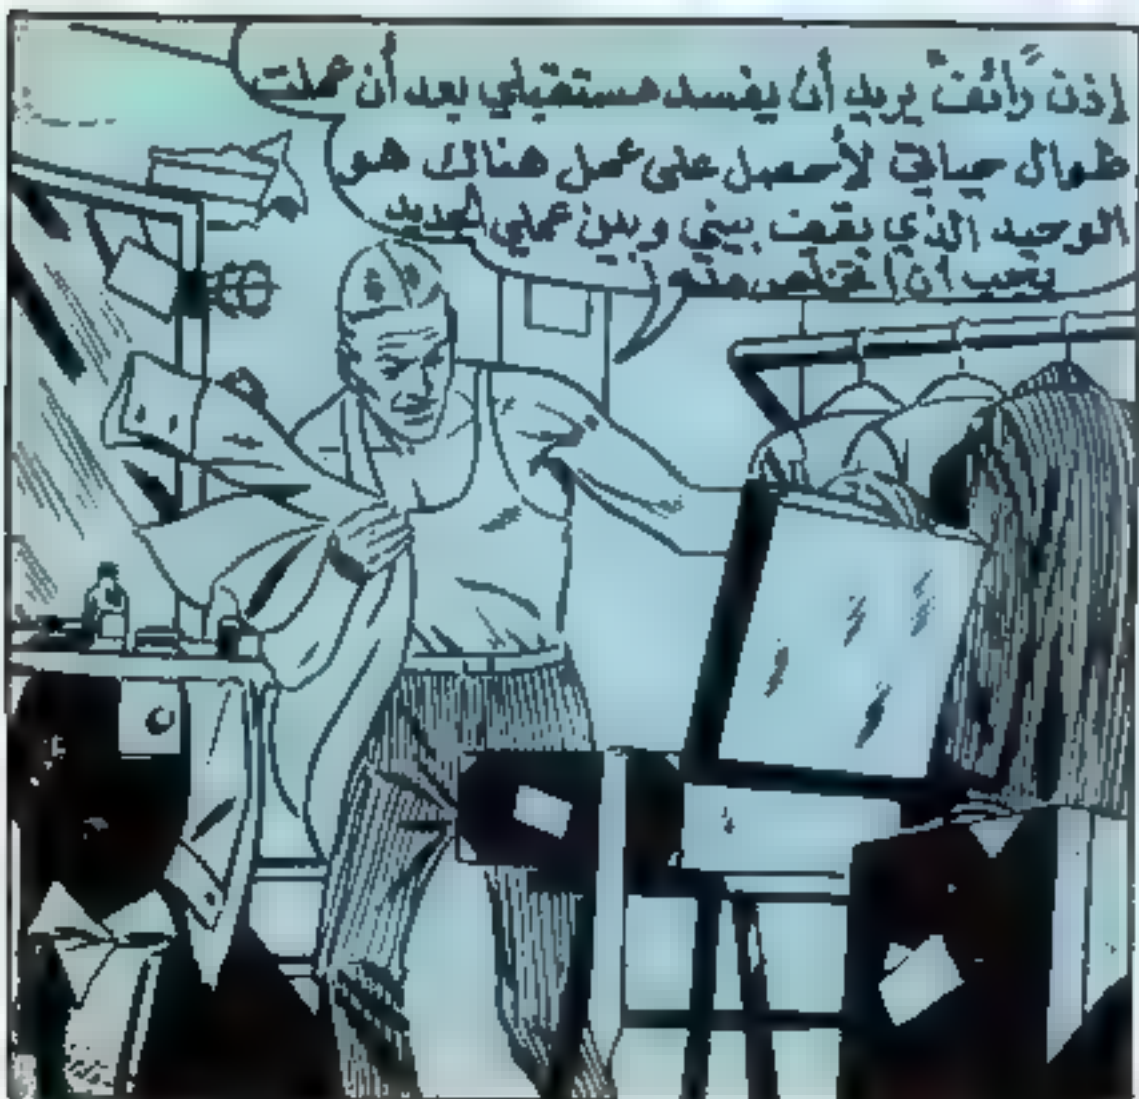 إذن رأفت يريد أن يفسد مستقبلي بعد أن عملت
طوال حياتي لأحصل على عمل هنالك هو
الوحيد الذي يقف بيني وبين عملي الجديد
يجب أن أتخلص منه